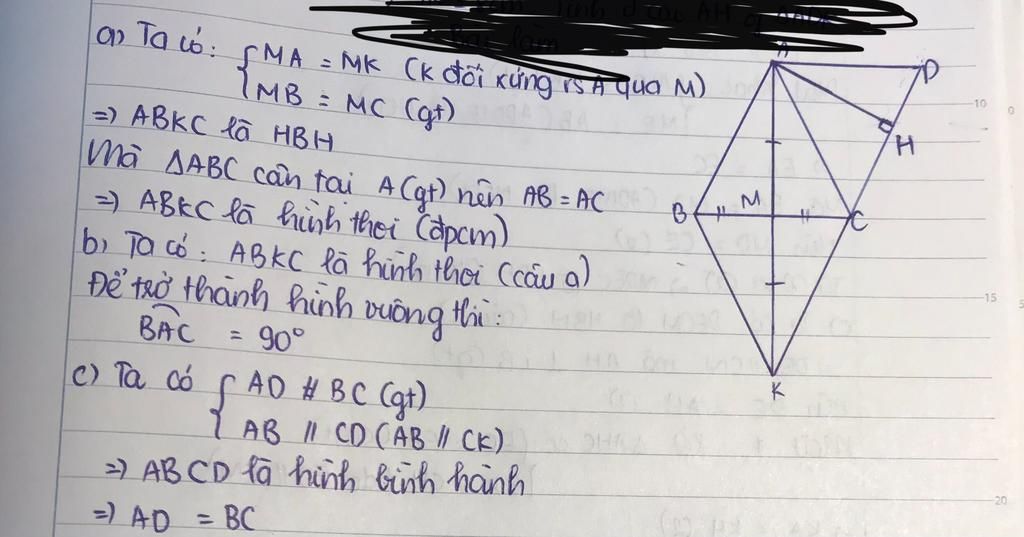 a) Ta có: { MA = MK (K đối xứng vs A qua M)
MB = MC (gt)
=> ABKC là HBH
Mà ΔABC cân tại A (gt) nên AB = AC
=> ABKC là hình thoi (đpcm)
b) Ta có: ABKC là hình thoi (câu a)
Để trở thành hình vuông thì:
BAC = 90°
c) Ta có { AD // BC (gt)
AB // CD (AB // CK)
=> ABCD là hình bình hành
=> AD = BC
A
D
H
B
M
C
K
10
15
20